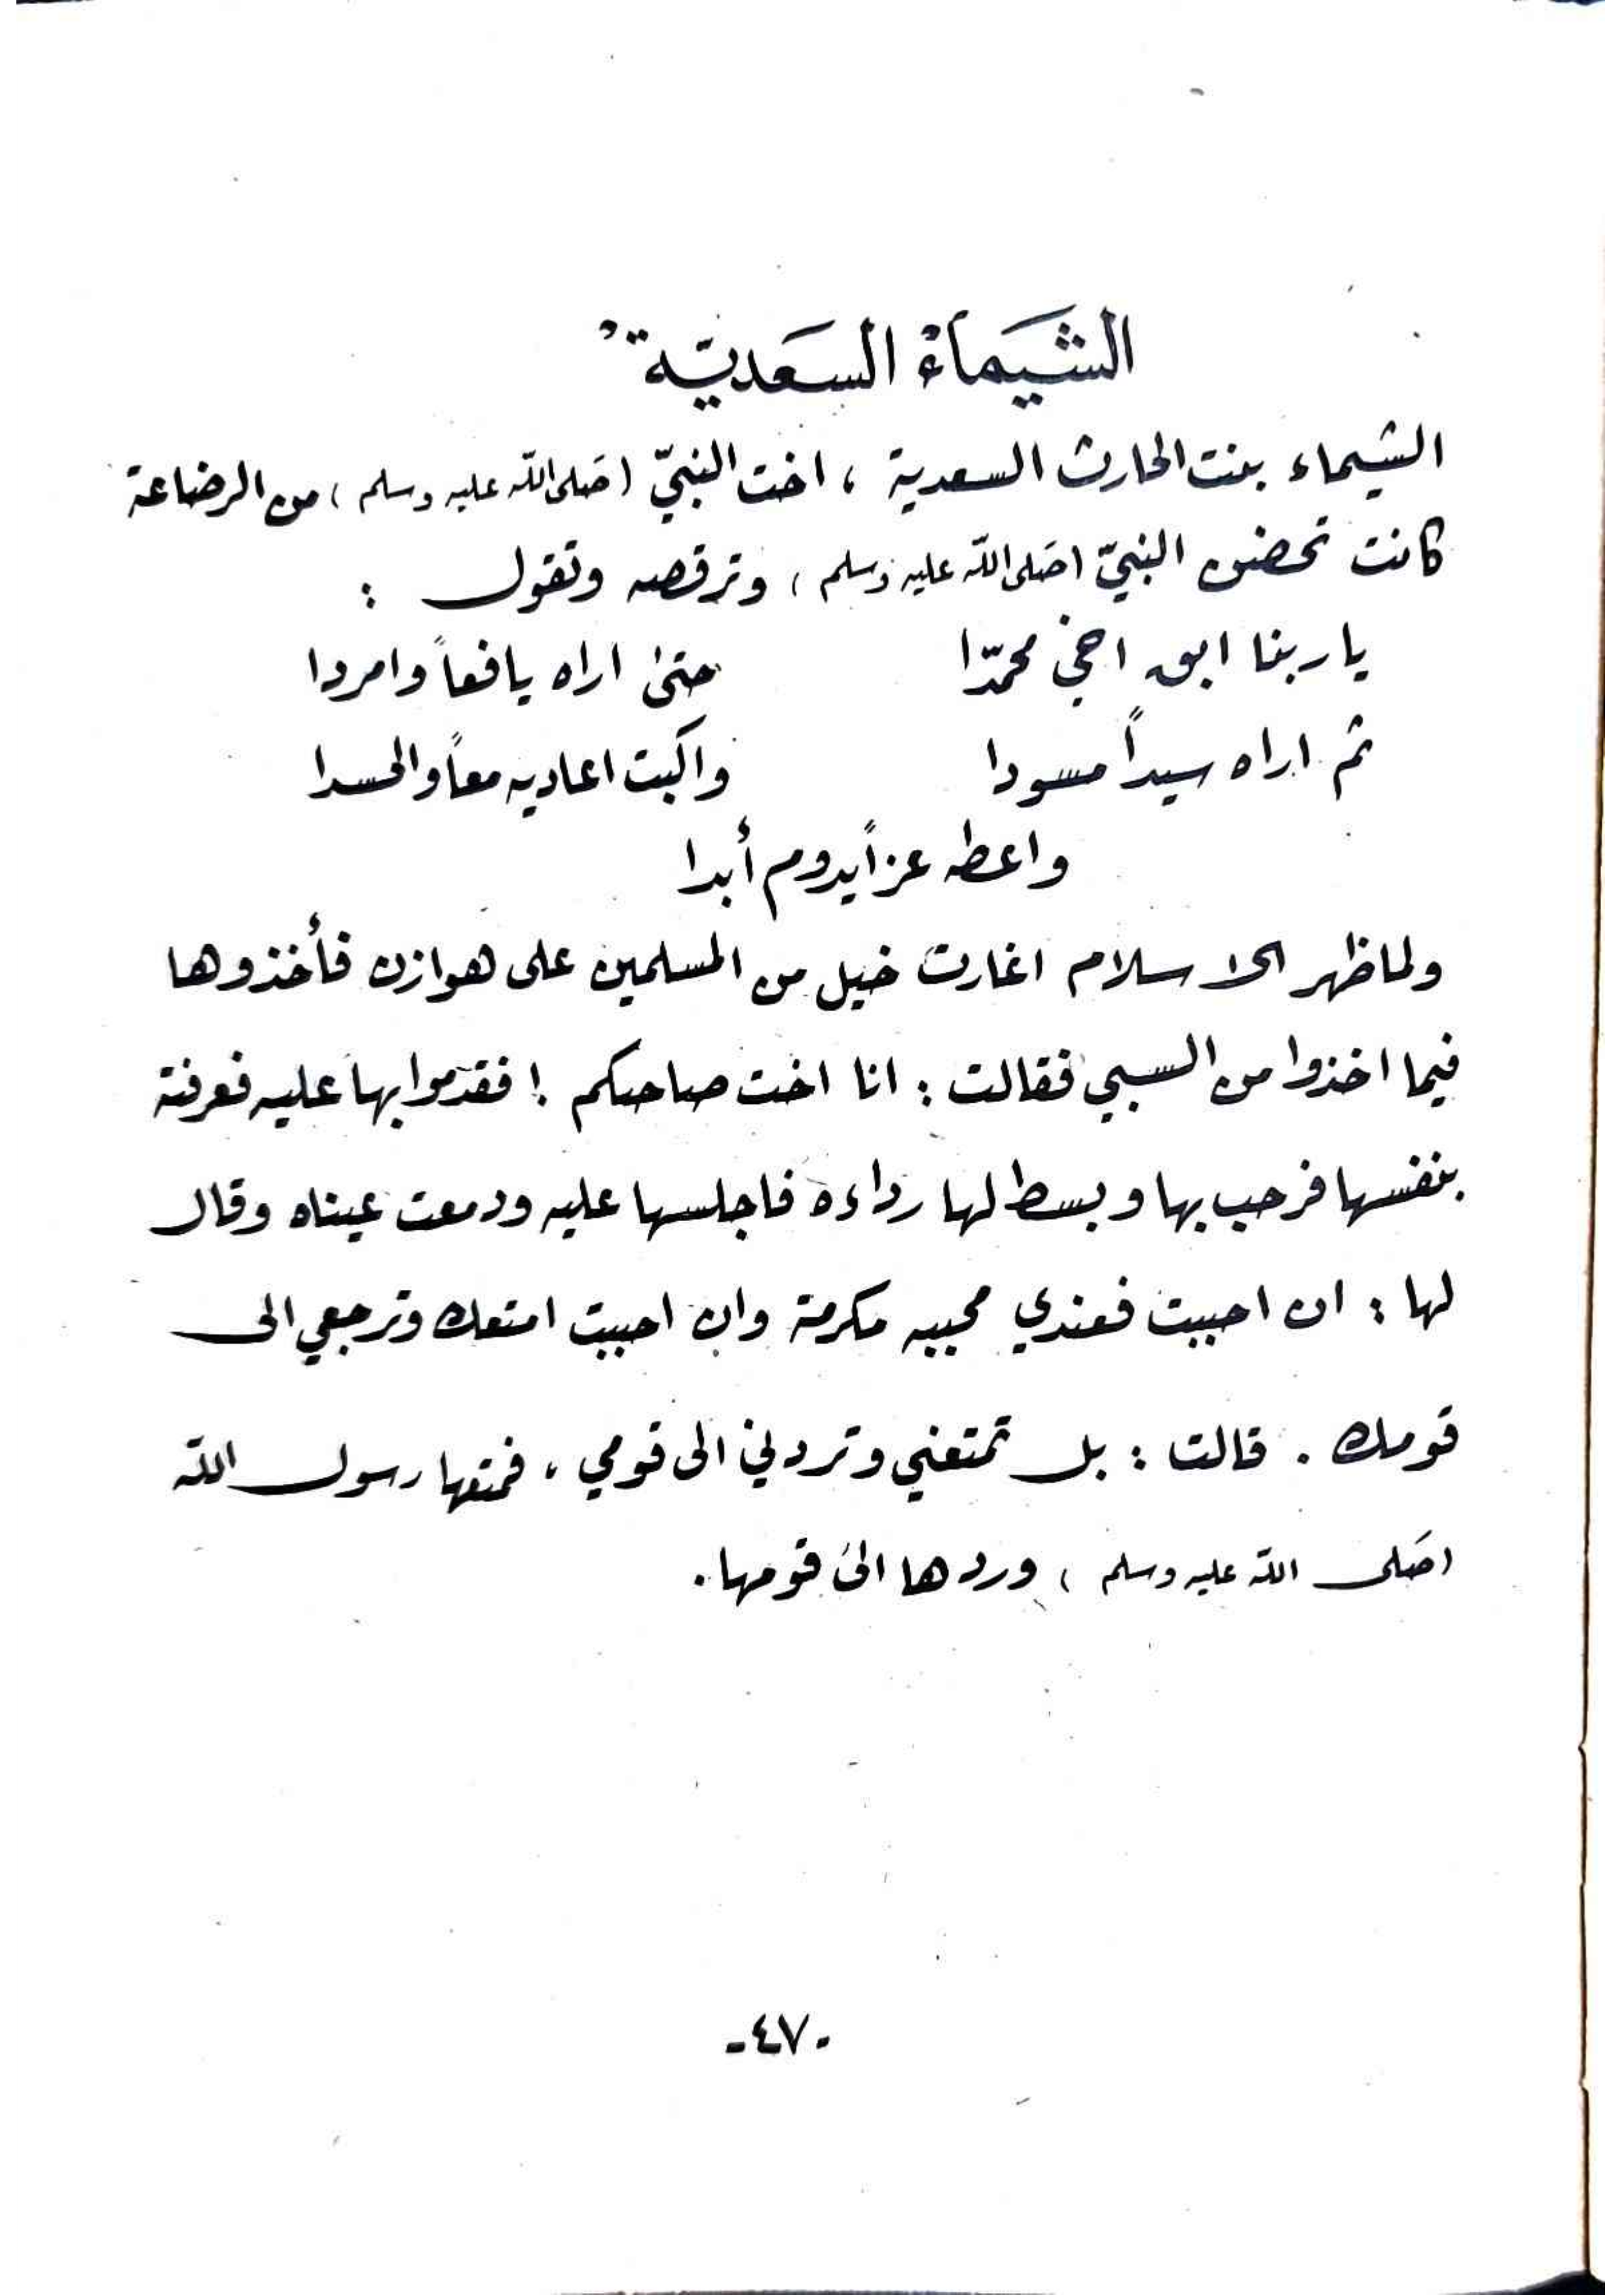 الشيماء السعدية
الشيماء بنت الحارث السعدية ، اخت النبيّ (صلى الله عليه وسلم) من الرضاعة
كانت تحضن النبيّ (صلى الله عليه وسلم) وترقصه وتقول :
يا ربنا ابق اخي محمّدا حتى اراه يافعاً وامردا
ثم اراه سيداً مسودا واكبت اعاديه معاً والحسدا
واعطه عزاً يدوم أبدا
ولما ظهر الاسلام اغارت خيل من المسلمين على هوازن فأخذوها
فيما اخذوا من السبي فقالت : انا اخت صاحبكم ! فقدموا بها عليه فعرفته
بنفسها فرحب بها وبسط لها رداءه فاجلسها عليه ودمعت عيناه وقال
لها : ان احببت فعندي محببه مكرمة وان احببت امتعك وترجعي الى
قومك . قالت : بل تمتعني وتردني الى قومي ، فمتعها رسول الله
(صلى الله عليه وسلم) وردها الى قومها .
-٤٧-